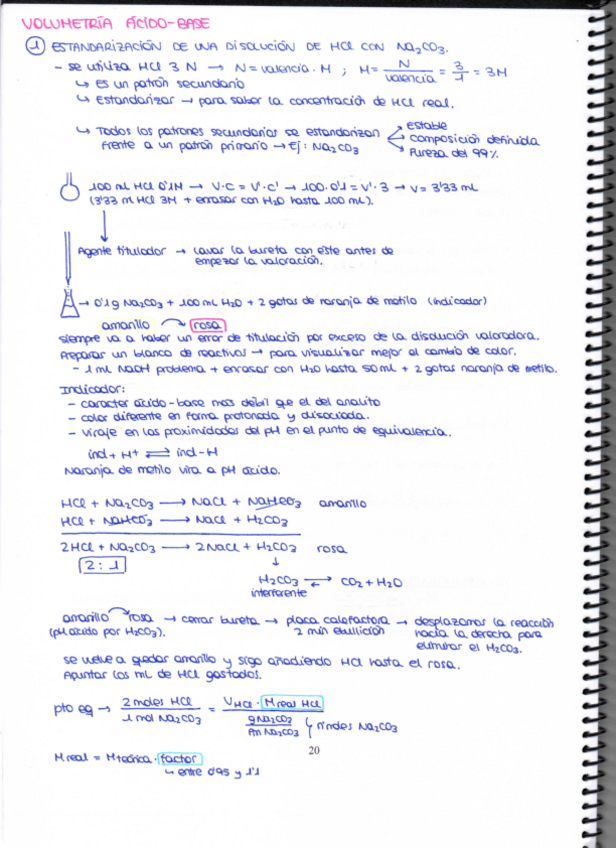 VOLUMETRÍA ÁCIDO-BASE
1 ESTANDARIZACIÓN DE UNA DISOLUCIÓN DE HCl CON Na2CO3.
- Se utiliza HCl 3 N → N = valencia · M ; M = N/valencia = 3/1 = 3M
↳ Es un patrón secundario
↳ Estandarizar → para saber la concentración de HCl real.
↳ Todos los patrones secundarios se estandarizan
frente a un patrón primario → Ej: Na2CO3
estable
composición definida
Pureza del 99%
100 ml HCl 0'1M → V·C = V'·C' → 100·0'1 = V'·3 → V = 3'33 ml
(3'33 ml HCl 3M + enrasar con H2O hasta 100 ml).
Agente titulador → lavar la bureta con este antes de
empezar la valoración.
→ 0'1g Na2CO3 + 100 ml H2O + 2 gotas de naranja de metilo (indicador)
amarillo → rosa
siempre va a haber un error de titulación por exceso de la disolución valoradora.
Preparar un blanco de reactivos → para visualizar mejor el cambio de color.
- 1 ml NaOH problema + enrasar con H2O hasta 50 ml + 2 gotas naranja de metilo.
Indicador:
- caracter ácido-base más débil que el del analito
- color diferente en forma protonada y disociada.
- viraje en las proximidades del pH en el punto de equivalencia.
ind + H+ ⇌ ind-H
Naranja de metilo vira a pH ácido.
HCl + Na2CO3 → NaCl + NaHCO3 amarillo
HCl + NaHCO3 → NaCl + H2CO3
2HCl + Na2CO3 → 2NaCl + H2CO3 rosa
2:1
↓
H2CO3 ⇌ CO2 + H2O
interferente
amarillo → rosa → cerrar bureta → placa calefactora → desplazamos la reacción
(pH ácido por H2CO3). 2 min ebullición hacia la derecha para
eliminar el H2CO3.
se vuelve a quedar amarillo y sigo añadiendo HCl hasta el rosa.
Apuntar los ml de HCl gastados.
pto eq → 2 moles HCl / 1 mol Na2CO3 = VHCl · M real HCl / g Na2CO3 / Pm Na2CO3 } nº moles Na2CO3
20
M real = M teórica · factor
↳ entre 0'95 y 1'1